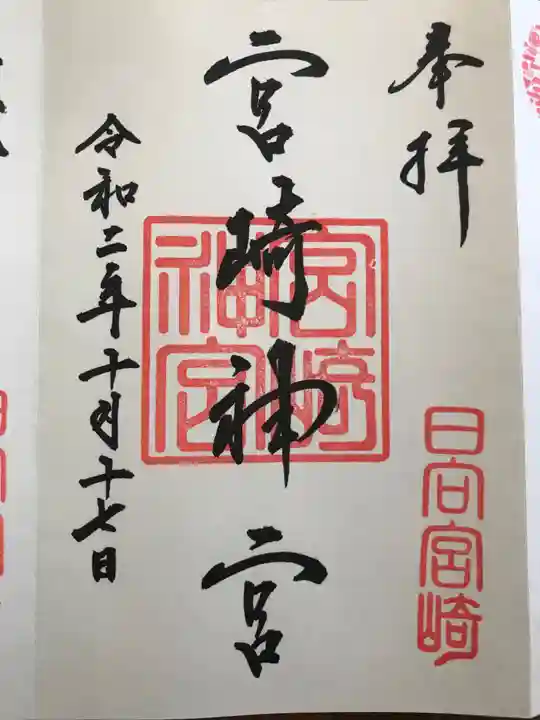 奉拝
日向宮崎
宮崎神宮
宮崎神宮
令和二年十月十七日